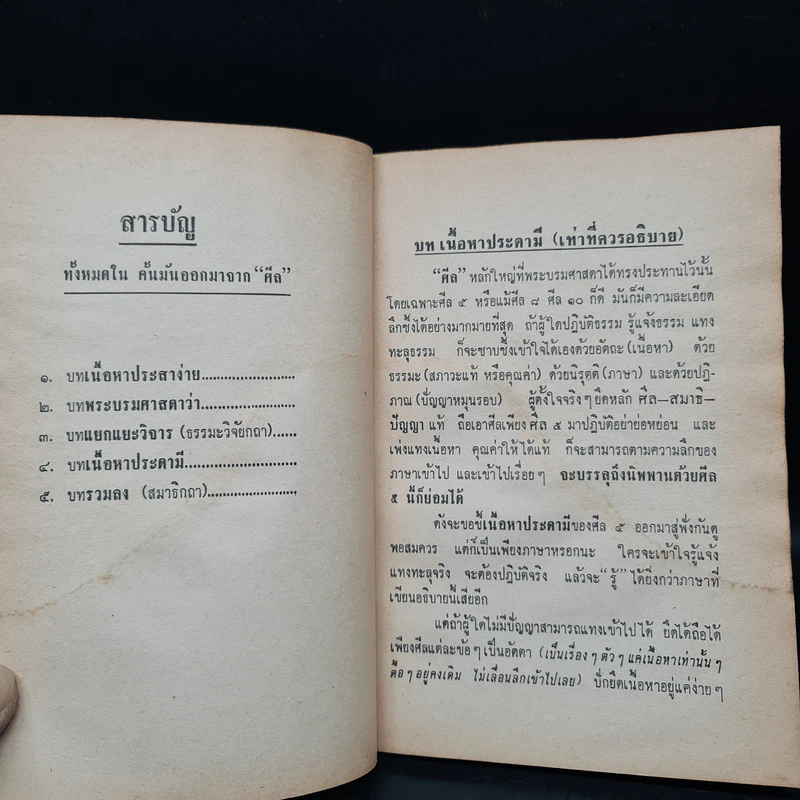 สารบัญ
ทั้งหมดใน ค้นมันออกมาจาก “ศีล”
๑. บทเนื้อหาประสาง่าย........................
๒. บทพระบรมศาสดาว่า........................
๓. บทแยกแยะวิจาร (ธรรมะวิจัยกถา)......
๔. บทเนื้อหาประดามี..........................
๕. บทรวมลง (สมาธิกถา)......................
บท เนื้อหาประดามี (เท่าที่ควรอธิบาย)
“ศีล” หลักใหญ่ที่พระบรมศาสดาได้ทรงประทานไว้นั้น
โดยเฉพาะศีล ๕ หรือแม้ศีล ๘ ศีล ๑๐ ก็ดี มันก็มีความละเอียด
ลึกซึ้งได้อย่างมากมายที่สุด ถ้าผู้ใดปฏิบัติธรรม รู้แจ้งธรรม แทง
ทะลุธรรม ก็จะซาบซึ้งเข้าใจได้เองด้วยอัตถะ (เนื้อหา) ด้วย
ธรรมะ (สภาวะแท้ หรือคุณค่า) ด้วยนิรุตติ (ภาษา) และด้วยปฏิ-
ภาณ (ปัญญาหมุนรอบ) ผู้ตั้งใจจริง ๆ ยึดหลัก ศีล—สมาธิ-
ปัญญา แท้ ถือเอาศีลเพียง ศีล ๕ มาปฏิบัติอย่าย่อหย่อน และ
เพ่งแทงเนื้อหา คุณค่าให้ได้แท้ ก็จะสามารถตามความลึกของ
ภาษาเข้าไป และเข้าไปเรื่อย ๆ จะบรรลุถึงนิพพานด้วยศีล
๕ นี้ก็ย่อมได้
ดังจะขอชี้เนื้อหาประดามีของศีล ๕ ออกมาสู่ฟังกันดู
พอสมควร แต่ก็เป็นเพียงภาษาหรอกนะ ใครจะเข้าใจรู้แจ้ง
แทงทะลุจริง จะต้องปฏิบัติจริง แล้วจะ “รู้” ได้ยิ่งกว่าภาษาที่
เขียนอธิบายนี้เสียอีก
แต่ถ้าผู้ใดไม่มีปัญญาสามารถแทงเข้าไปได้ ยึดได้ถือได้
เพียงศีลแต่ละข้อ ๆ เป็นอัตตา (เป็นเรื่อง ๆ ตัว ๆ แค่เนื้อหาเท่านั้น ๆ
ดื้อ ๆ อยู่คงเดิม ไม่เลื่อนลึกเข้าไปเลย) ปักยึดเนื้อหาอยู่แค่ง่าย ๆ